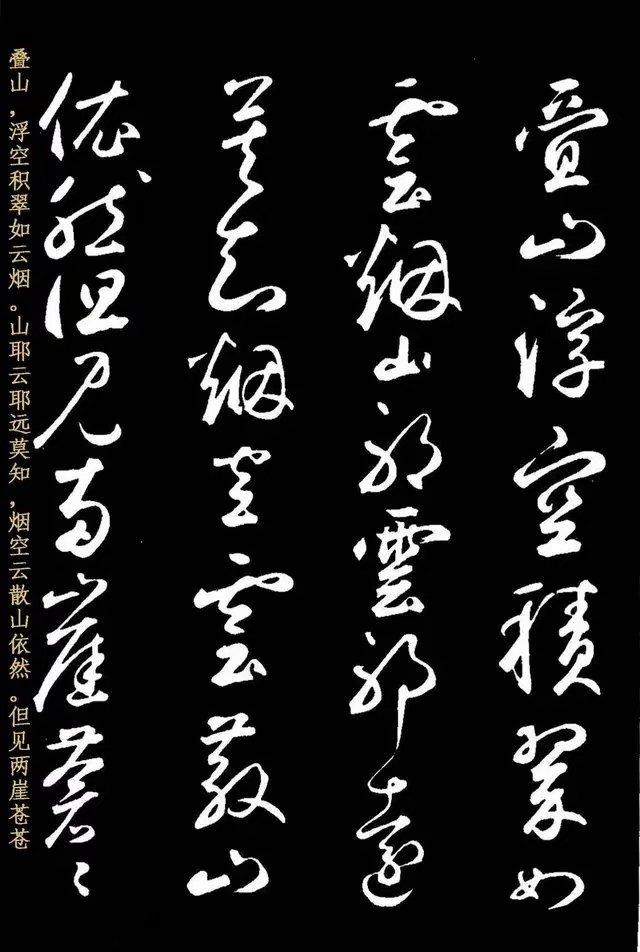 疊山浮空積翠如
雲煙山耶雲耶遠
莫知煙空雲散山
依然但見兩崖蒼〻
叠山，浮空积翠如云烟。山耶云耶远莫知，烟空云散山依然。但见两崖苍苍